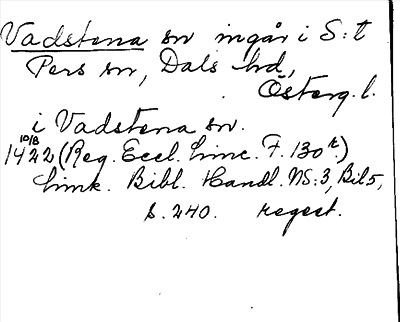 Vadstena sn ingår i S:t
Pers sn, Dals hd,
Österg. l.
i Vadstena sn.
10/8
1422 (Reg. Eccl. Linc. F. 130 r.)
Link. Bibl. Handl. NS:3, Bil 5,
s. 240. regest.